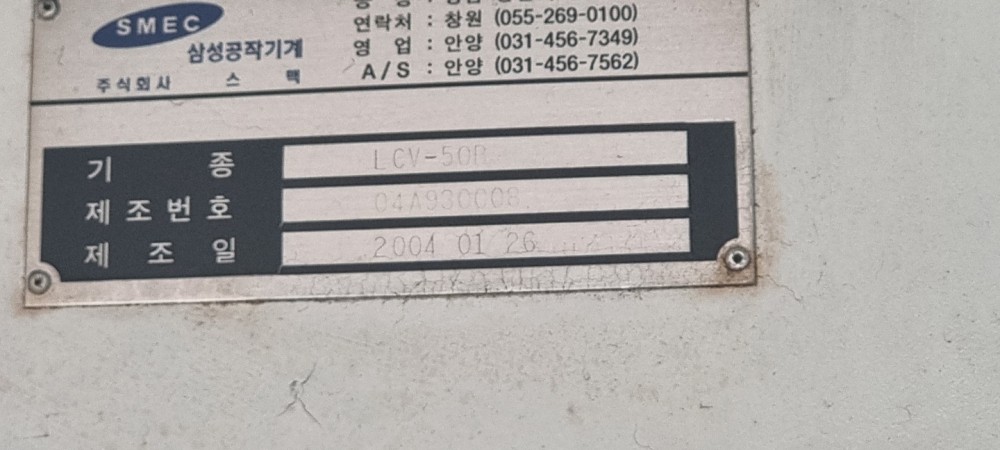 SMEC
삼성공작기계
주식회사 스맥
연락처 : 창원 (055-269-0100)
영 업 : 안양 (031-456-7349)
A/S : 안양 (031-456-7562)
기 종 LCV-50
제조번호 04A930008
제 조 일 2004 01 26